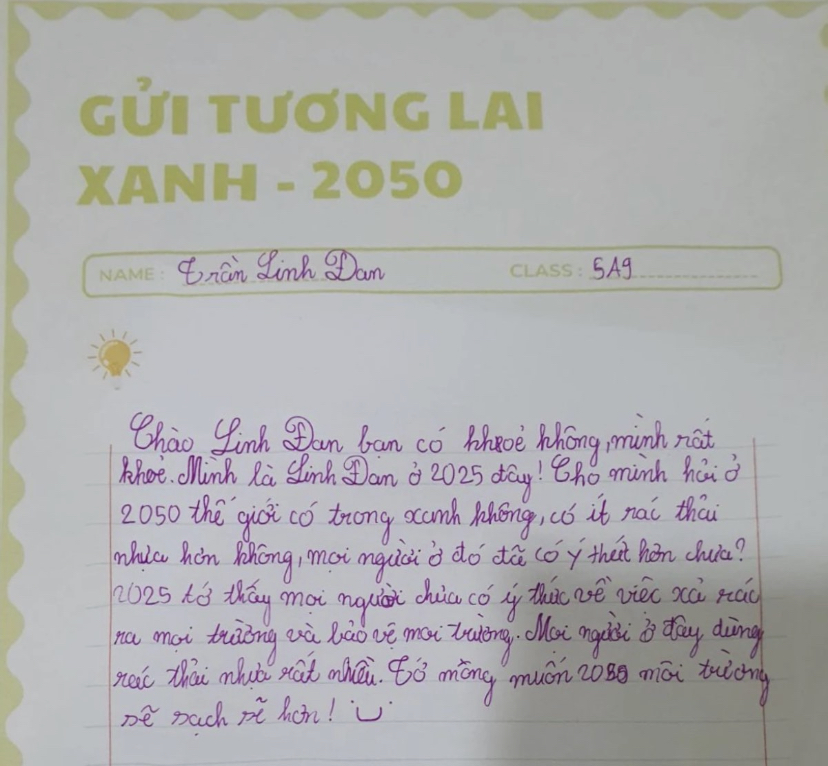 GỬI TƯƠNG LAI
XANH - 2050
NAME : Trần Linh Đan CLASS : 5A9
Chào Linh Đan bạn có khoẻ không, mình rất
khoẻ. Mình là Linh Đan ở 2025 đây! Cho mình hỏi ở
2050 thế giới có trong xanh không, có ít rác thải
nhựa hơn không, mọi người ở đó đã có ý thức hơn chưa?
2025 tớ thấy mọi người chưa có ý thức về việc xả rác
ra môi trường và bảo vệ môi trường. Mọi người ở đây dùng
rác thải nhựa rất nhiều. Tớ mong muốn 2050 môi trường
sẽ sạch sẽ hơn!